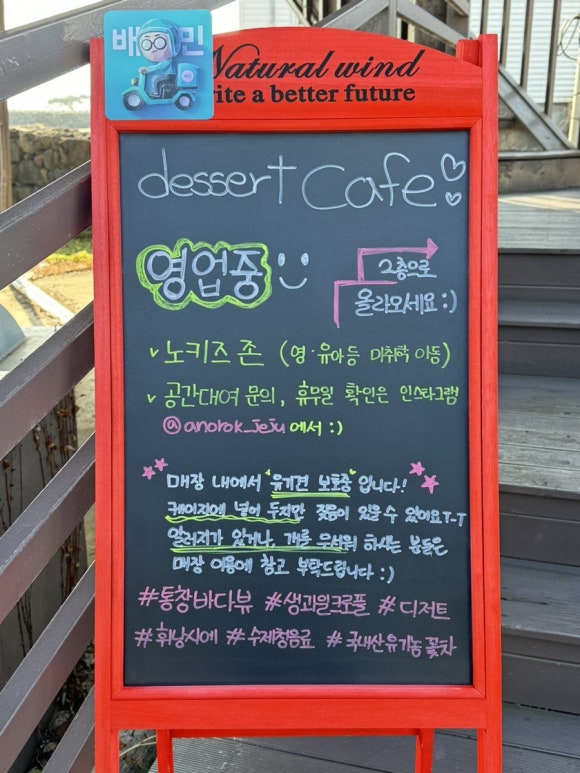 배민
Natural wind
rite a better future
dessert Cafe
영업중
2층으로
올라오세요 :)
노키즈 존 (영·유아등 미취학 아동)
공간대여 문의, 휴무일 확인은 인스타그램
@anorok_jeju 에서 :)
매장 내에서 "유기견 보호중" 입니다!
케이지에 넣어 두지만 짖음이 있을 수 있어요 T-T
알러지가 있거나, 개를 무서워 하시는 분들은
매장 이용에 참고 부탁드립니다 :)
#통창바다뷰 #생과일크로플 #디저트
#휘낭시에 #수제청음료 #국내산유기농 꽃차